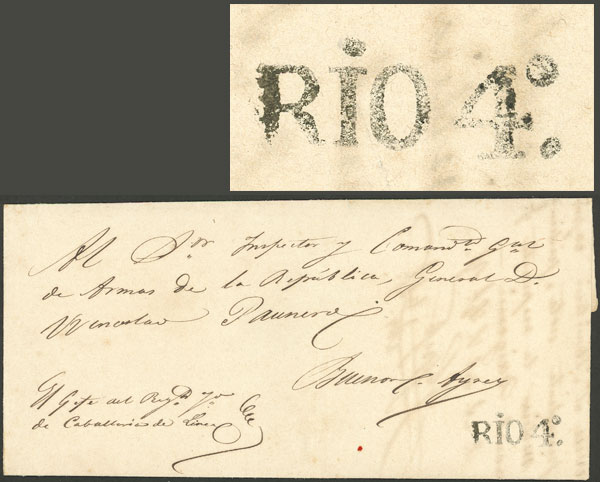 RIO 4º.
Al Sor Inspector y Comandte Gral
de Armas de la República, General D.
Wenceslao Paunero
Buenos Ayres
El Gefe del Regto 7o
de Caballeria de Linea
RIO 4º.